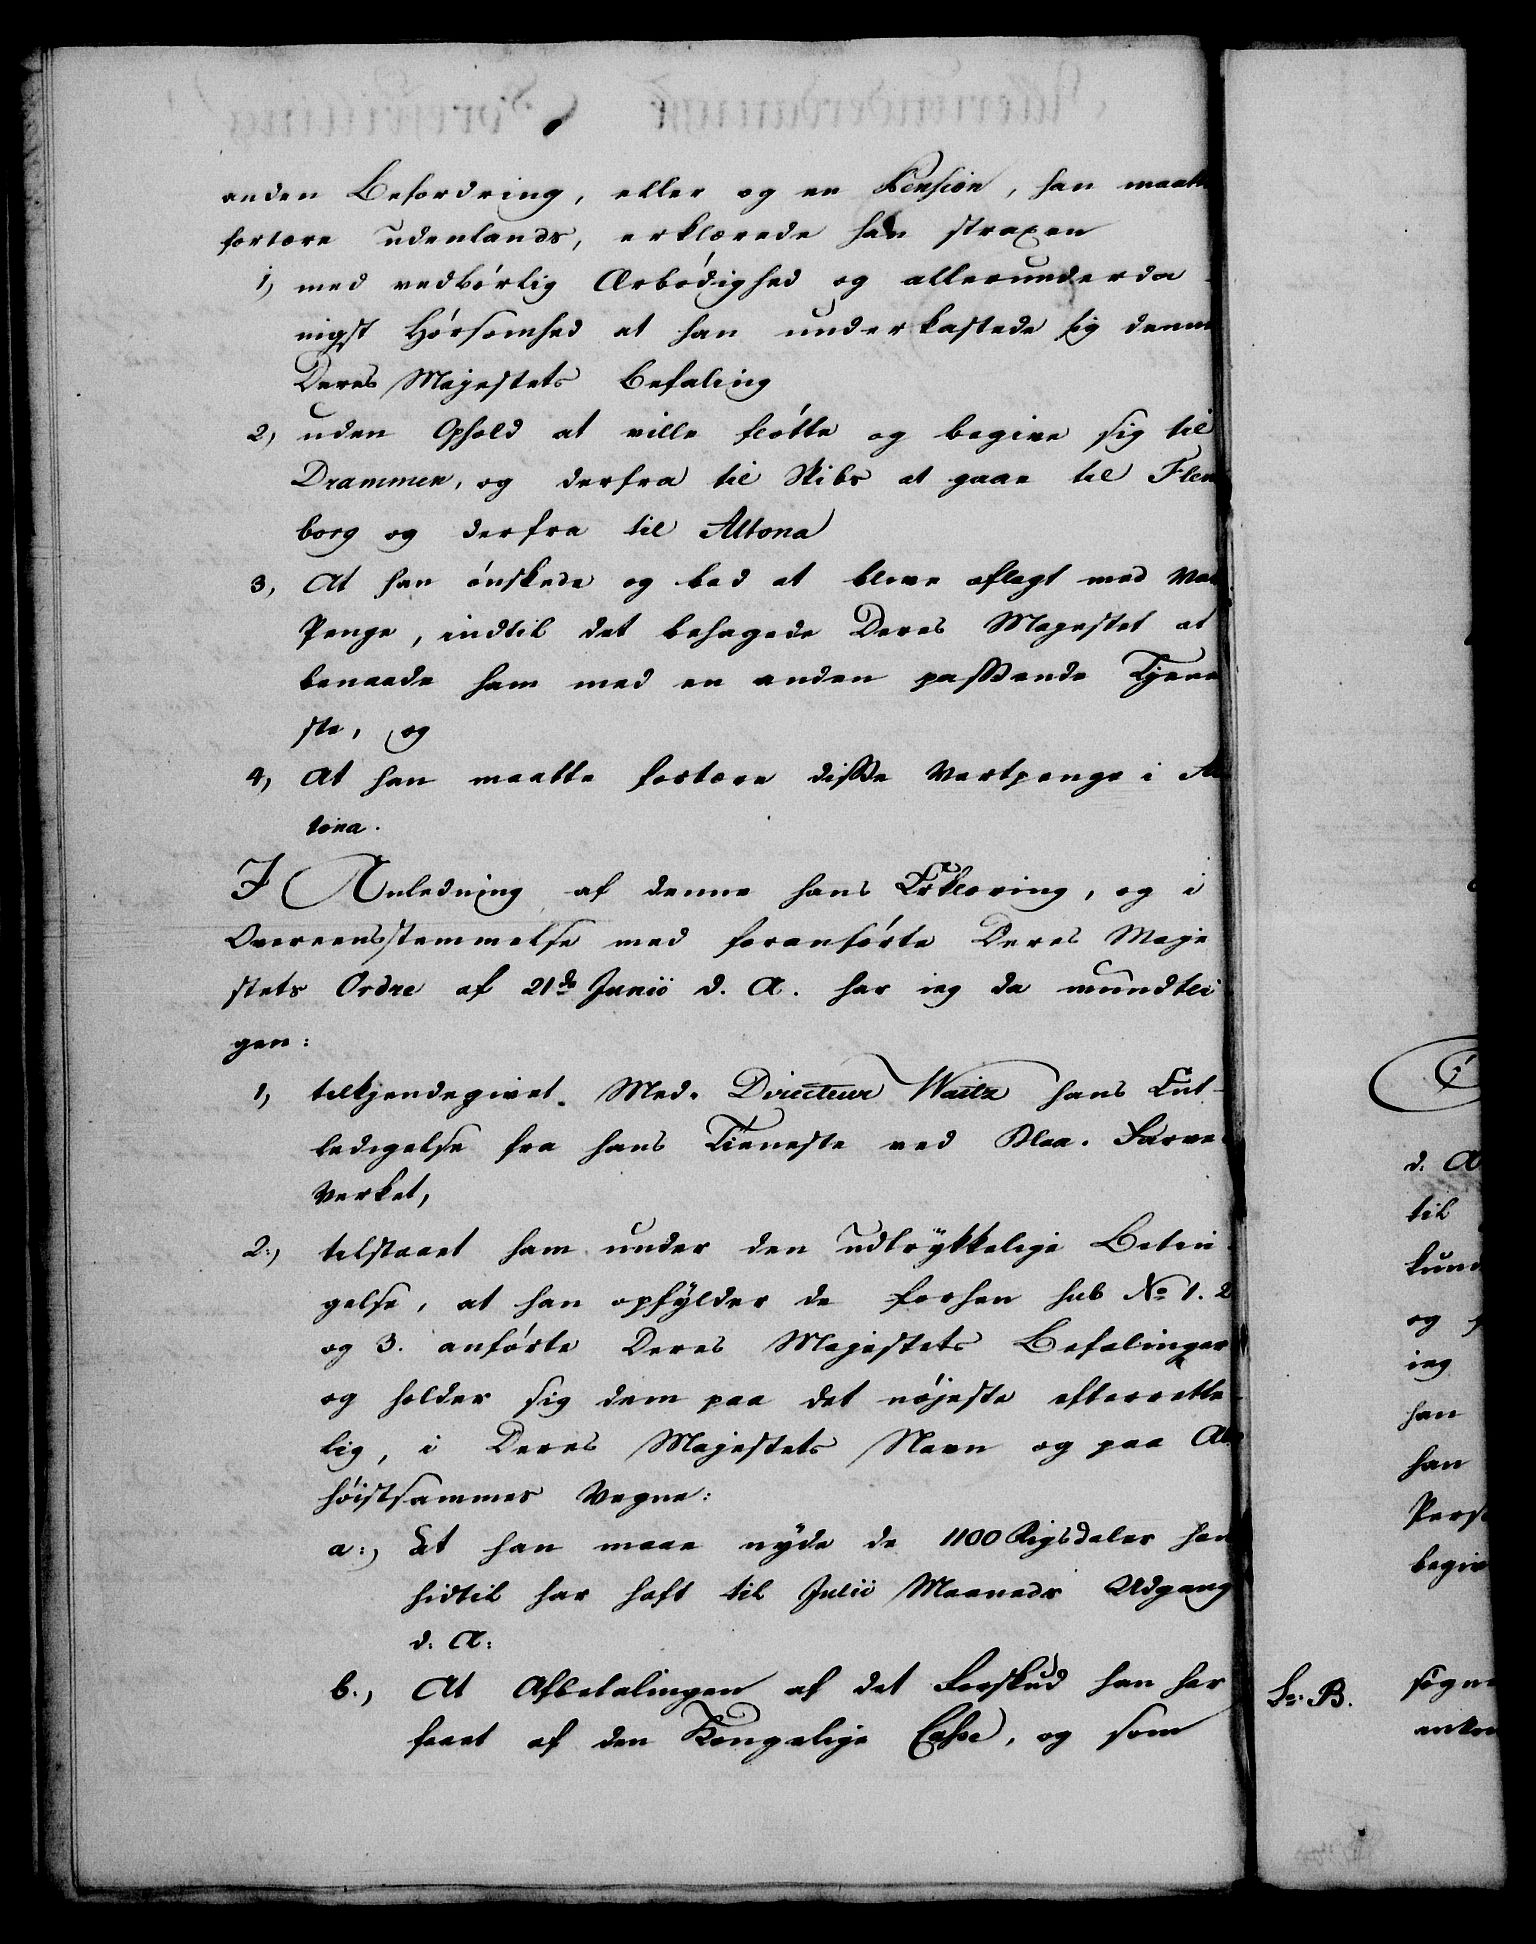 anden Befordring, eller og en Pension, han maatte
fortære udenlands, erklærede han straxen
1) med vedbörlig Ærbödighed og allerunderda-
nigst Hörsomhed at han underkastede sig denne
Deres Majestets Befaling
2) uden Ophold at ville flötte og begive sig til
Drammen, og derfra til Skibs at gaae til Flens
borg og derfra til Altona
3, At han önskede og bad at blive aflagt med Vart
Penge, indtil det behagede Deres Majestet at
benaade ham med en anden passende Tjene
ste, og
4, At han maatte fortære disse Vartpenge i Al
tona.
I Anledning af denne hans Erklæring, og i
Overeensstemmelse med foranförte Deres Maje
stets Ordre af 21de Junii d. A. har ieg da mundtli
gen:
1, tilkjendegivet Med. Directeur Waitz hans Ent-
ledigelse fra hans Tieneste ved Blaa-Farve-
Verket,
2., tilstaaet ham under den udtrÿkkelige Betin-
gelse, at han opfÿlder de forhen sub No 1. 2
og 3. anförte Deres Majestets Befalinger
og holder sig dem paa det nöjeste efterrette-
lig, i Deres Majestets Navn og paa Aller
höistsammes Vegne:
a:, At han maae nyde de 1100 Rigsdaler han
hidtil har haft til Julii Maaneds Udgang
d. A:
b., At Afbetalingen af det Forskud han har
faaet af den Kongelige Casse, og som
d. A
til
kund
og
ieg
han
han
Pers
begiv
Lr. B.